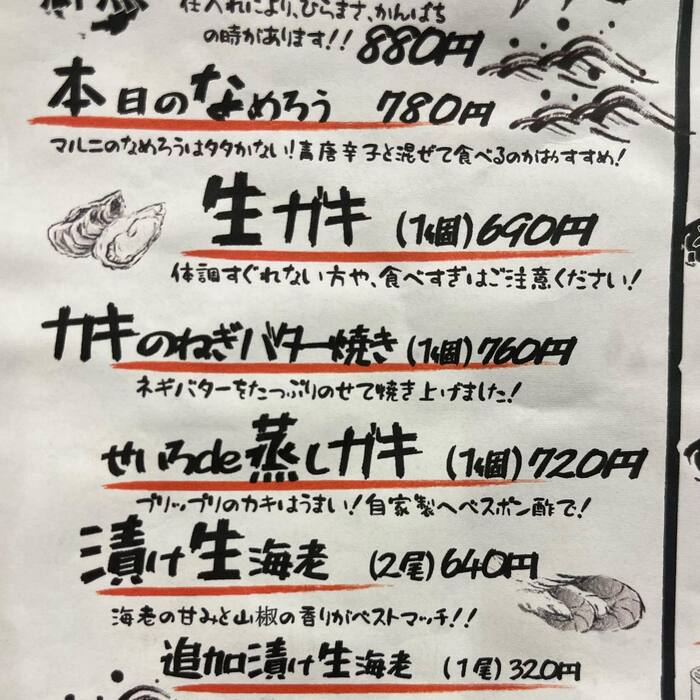 仕入れにより、ひらまさ、かんぱち
の時があります!! 880円
本日のなめろう 780円
マルニのなめろうはタタかない!青唐辛子と混ぜて食べるのがおすすめ!
生ガキ (1個)690円
体調すぐれない方や、食べすぎはご注意ください!
カキのねぎバター焼き(1個)760円
ネギバターをたっぷりのせて焼き上げました!
せいろde蒸しガキ (1個)720円
プリップリのカキはうまい!自家製ヘベスポン酢で!
漬け生海老 (2尾)640円
海老の甘みと山椒の香りがベストマッチ!!
追加漬け生海老 (1尾)320円